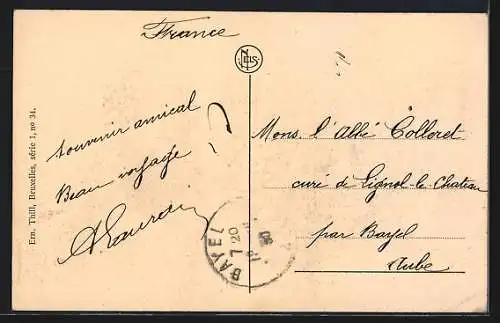 France
NELS
Ern. Thill, Bruxelles, série 1, no 34.
Souvenir amical
Beau voyage
Mons. l'Abbé Colloret
curé de Lignol-le-Chateau
par Bayel
Aube
BAYEL
7
20